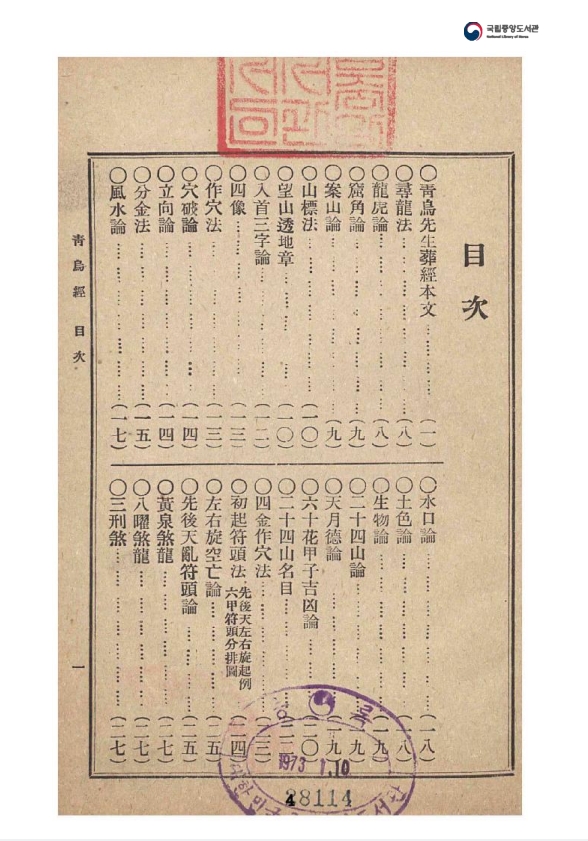 국립중앙도서관
National Library of Korea
目次
○靑鳥先生葬經本文…………(一)
○尋龍法…………(八)
○龍虎論…………(八)
○窟角論…………(九)
○案山論…………(九)
○山標法…………(一〇)
○望山透地章…………(一〇)
○入首三字論…………(一二)
○四像…………(一三)
○作穴法…………(一三)
○穴破論…………(一四)
○立向論…………(一四)
○分金法…………(一五)
○風水論…………(一七)
○水口論…………(一八)
○土色論…………(一八)
○生物論…………(一九)
○二十四山論…………(一九)
○天月德論…………(一九)
○六十花甲子吉凶論…………(二〇)
○二十四山名目…………(二二)
○四金作穴法…………(二三)
○初起符頭法 先後天左右旋起例
六甲符頭分排圖 (二四)
○左右旋空亡論…………(二五)
○先後天亂符頭論…………(二五)
○黃泉煞龍…………(二七)
○八曜煞龍…………(二七)
○三刑煞…………(二七)
靑鳥經 目次
一
1973 1.10